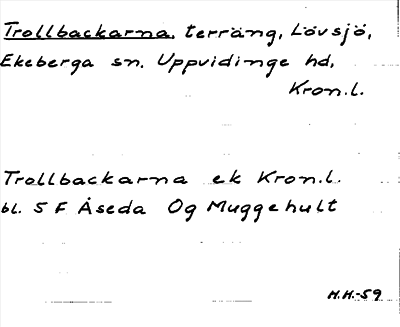 Trollbackarna, terräng, Lövsjö,
Ekeberga sn. Uppvidinge hd,
Kron.l.
Trollbackarna ek Kron.l.
bl. 5 F Åseda Og Muggehult
H.H.-59